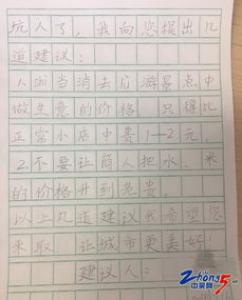 坑人了，我向您提出几
道建议：
1.洲当消去后游景点中
做生意的价格，只得比
正常小店中贵1—2元。
2.不要让商人把水、米
的价格升到免贵。
以上几道建议我希望您
采取，让城市更美好！
建议人：
zhong5
中吴网